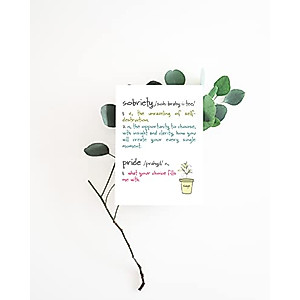 sobriety /suh·brahy·i·tee/
1. n, the unraveling of self-
destruction.
2. n, the opportunity to choose,
with weight and clarity, how you
will create your every single
moment.
pride /prahyd/ n,
1. what your choice fills
me with.